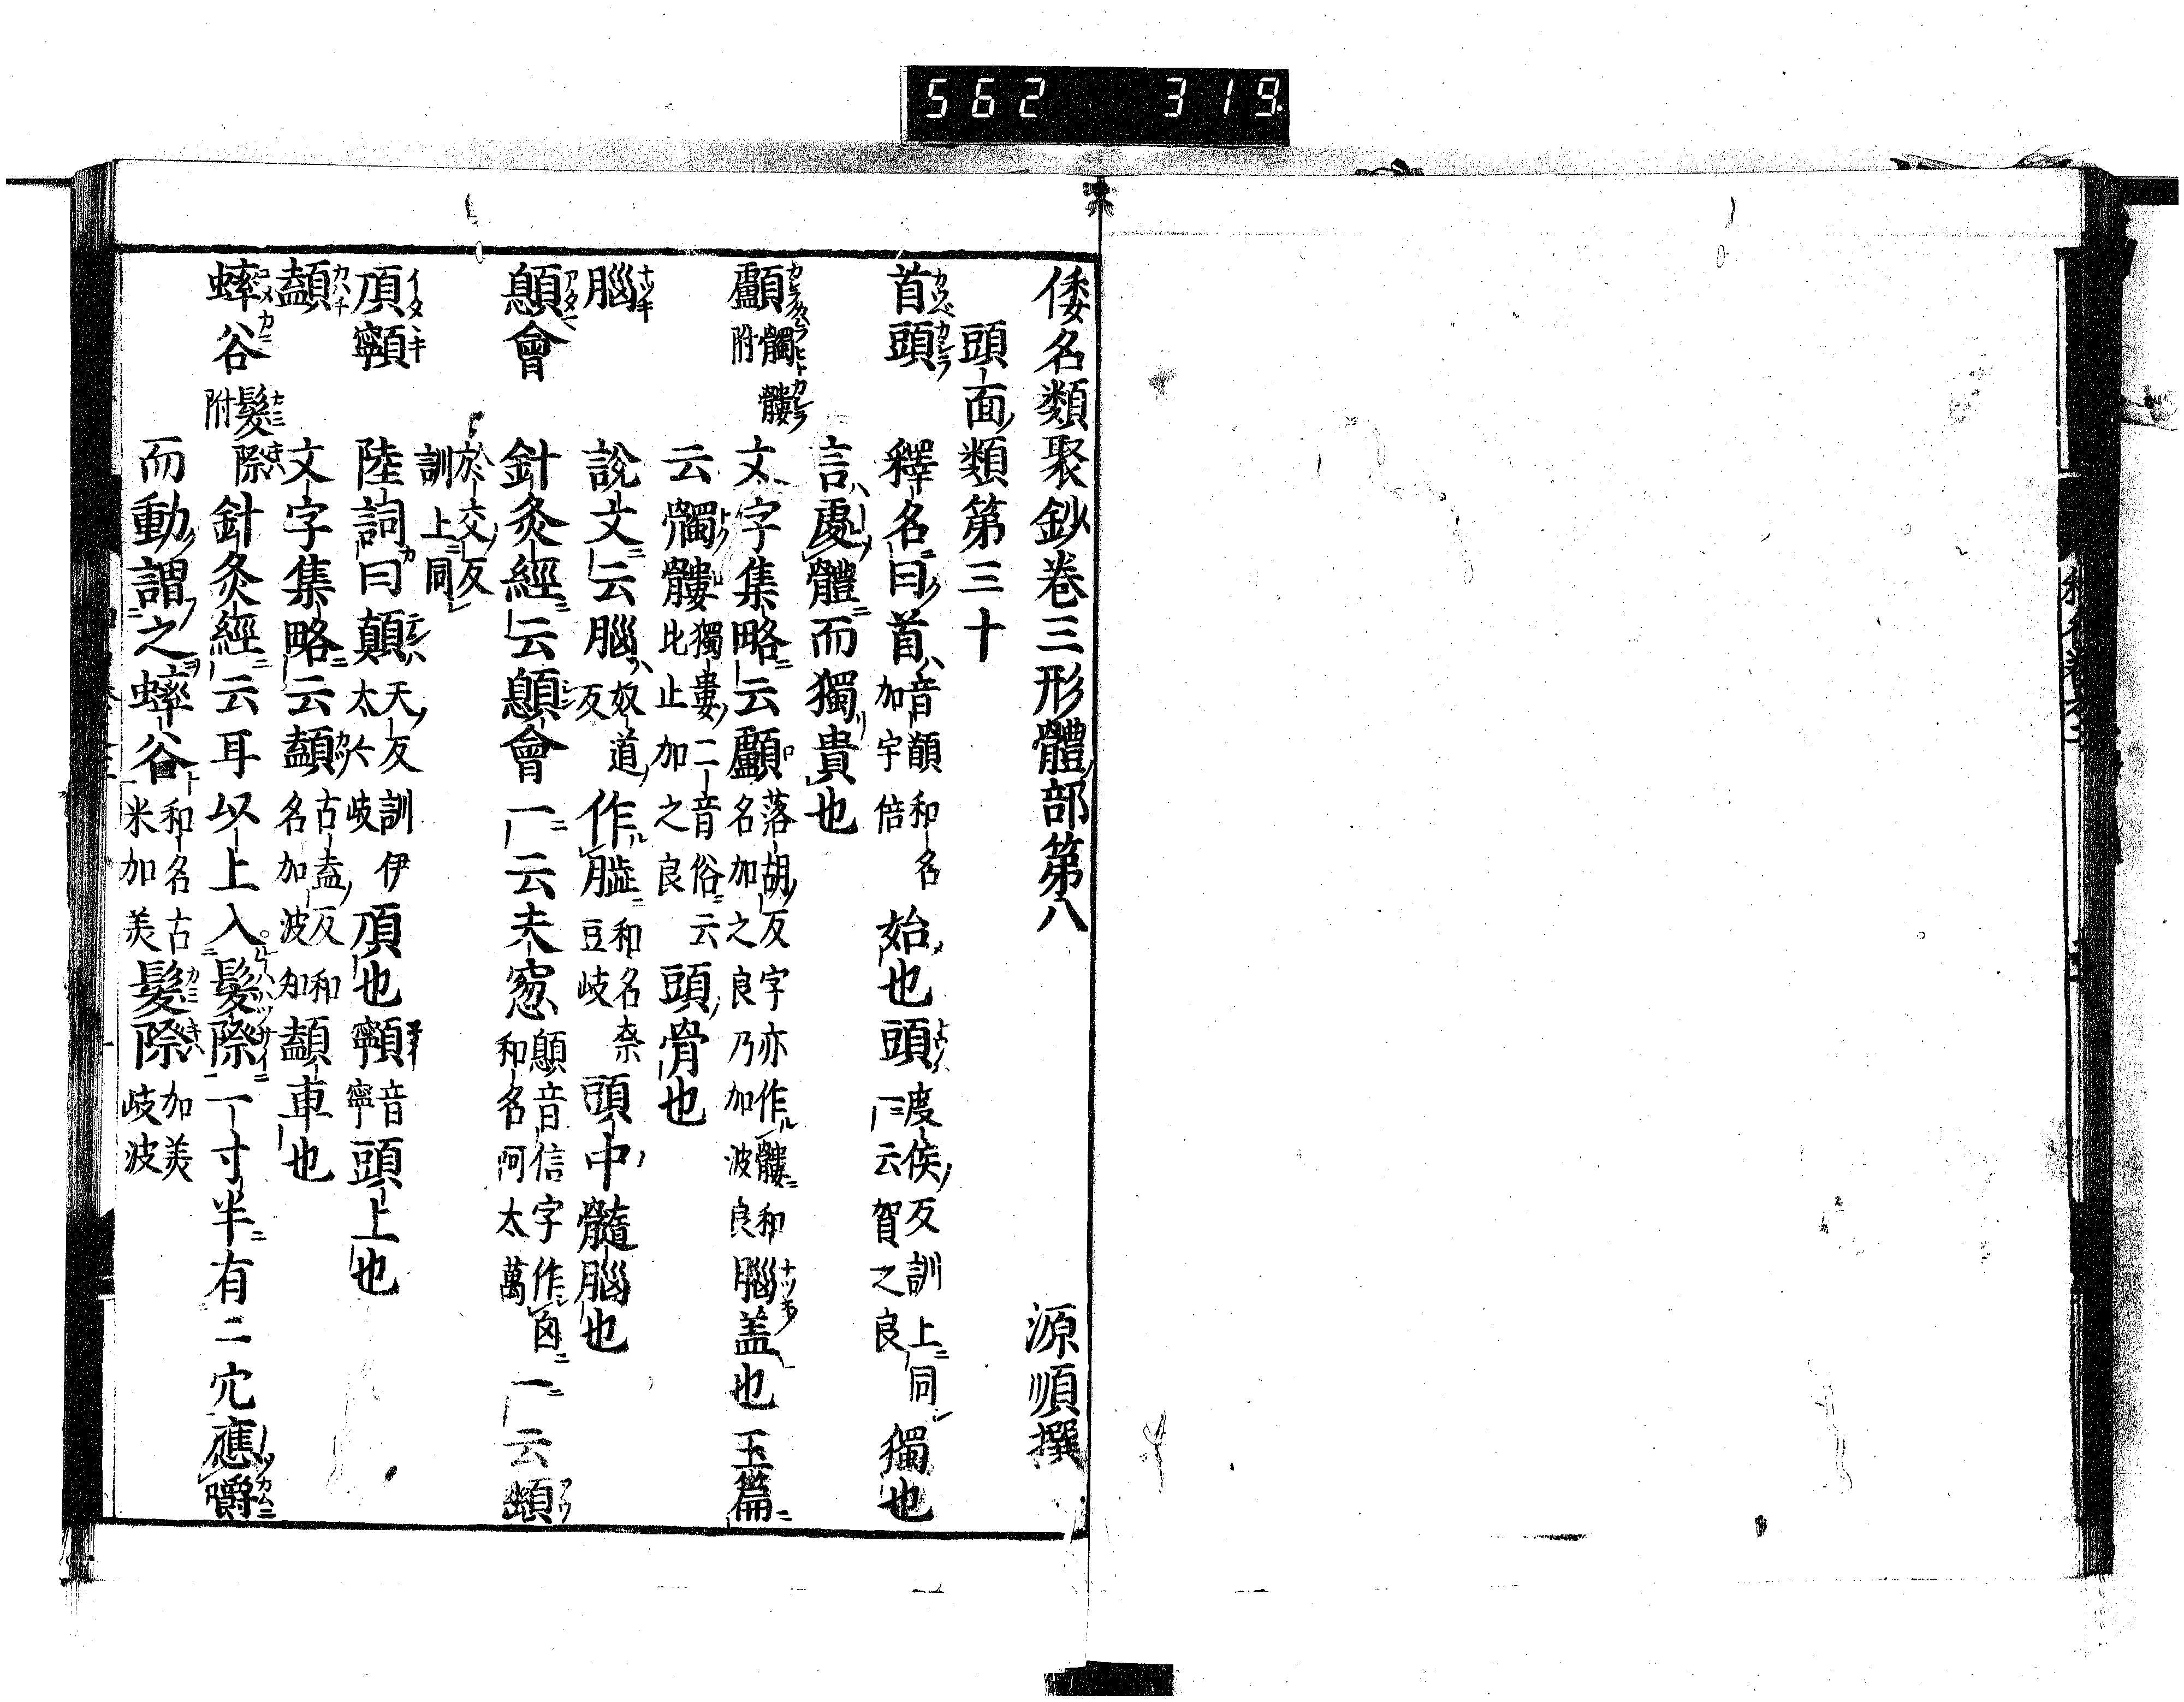 562 319
倭名類聚鈔卷三形體部第八 源順撰
頭面類第三十
首頭 釋名曰首音䪵和名加宇倍始也頭度侯反訓上同一云賀之良獨也
言處體而獨貴也
顱髑髏附 文字集略云顱落胡反字亦作髏和名加之良乃加波良腦盖也玉篇
云髑髏獨婁二音俗云比止加之良頭骨也
腦 說文云腦奴道反作𦛁和名奈豆岐頭中髓腦也
顖會 針灸經云顖會一云天窓顖音信字作囟和名阿太萬一云䫜
於交反訓上同
頂𩕳 陸詞曰顛天反訓伊太々岐頂也𩕳音寧頭上也
顱 文字集略云䫦古盍反和名加波知䫦車也
蟀谷髮際附 針灸經云耳以上入髮際一寸半有二穴應嚼
而動謂之蟀谷和名古米加美髮際加美岐波